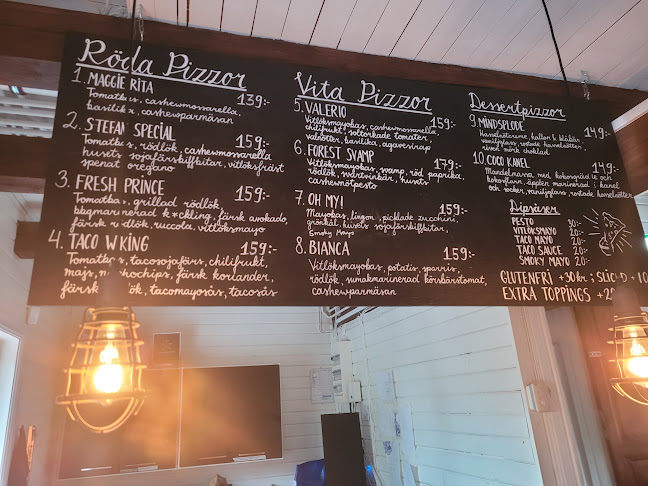 Röda Pizzor
1. MAGGIE RITA 139:-
cashewmossarella,
basilika, cashewparmesan
2. STEFAN SPECIAL 159:-
rödlök, cashewmossarella
husets sojafärsköffbitar, vitlöksfräst
spenat oregano
3. FRESH PRINCE 159:-
grillad rödlök,
bbqmarinerad k*ckling, färsk avokado,
färsk rödlök, ruccola, vitlöksmayo
4. TACO W KING 159:-
tacosojafärs, chilifrukt,
majs, nachochips, färsk koriander,
färsk tacomayosås, tacosås
Vita Pizzor
5. VALERIO 159:-
Vitlöksmayobas, cashewmossarella,
chilifrukt, soltorkade tomater,
valnötter, basilika, agavesirap
6. FOREST SVAMP 179:-
Vitlöksmayobas, svamp, röd paprika,
rödlök, svartvinbär, husets
cashewmötpesto
7. OH MY! 159:-
Mayobas, lingon, picklade zucchini,
grönkål, husets sojafärsköffbitar,
Smoky Mayo
8. BIANCA 159:-
Vitlöksmayobas, potatis, sparris,
rödlök, sumakmarinerad körsbärstomat,
cashewparmäsan
Dessertpizzor
9. MINDSPLODE 149:-
hallon & blåbär,
vaniljglass, rostade hasselnötter,
riven mörk choklad
10. COCO KANEL 149:-
Mandelmassa, med kokosgrädde och
kokosflarn, äpplen marinerad i kanel
och socker, vaniljglass, rostade hasselnötter
Dipsåser
PESTO 30:-
VITLÖKSMAYO 20:-
TACO MAYO 20:-
TACO SAUCE 20:-
SMOKY MAYO 20:-
GLUTENFRI +30 kr ;
EXTRA TOPPINGS